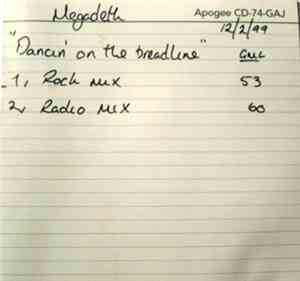 Megadeth Apogee CD-74-GAJ
12/2/99
"Dancin' on the breadline"
1, Rock MIX 53
2, Radio MIX 60